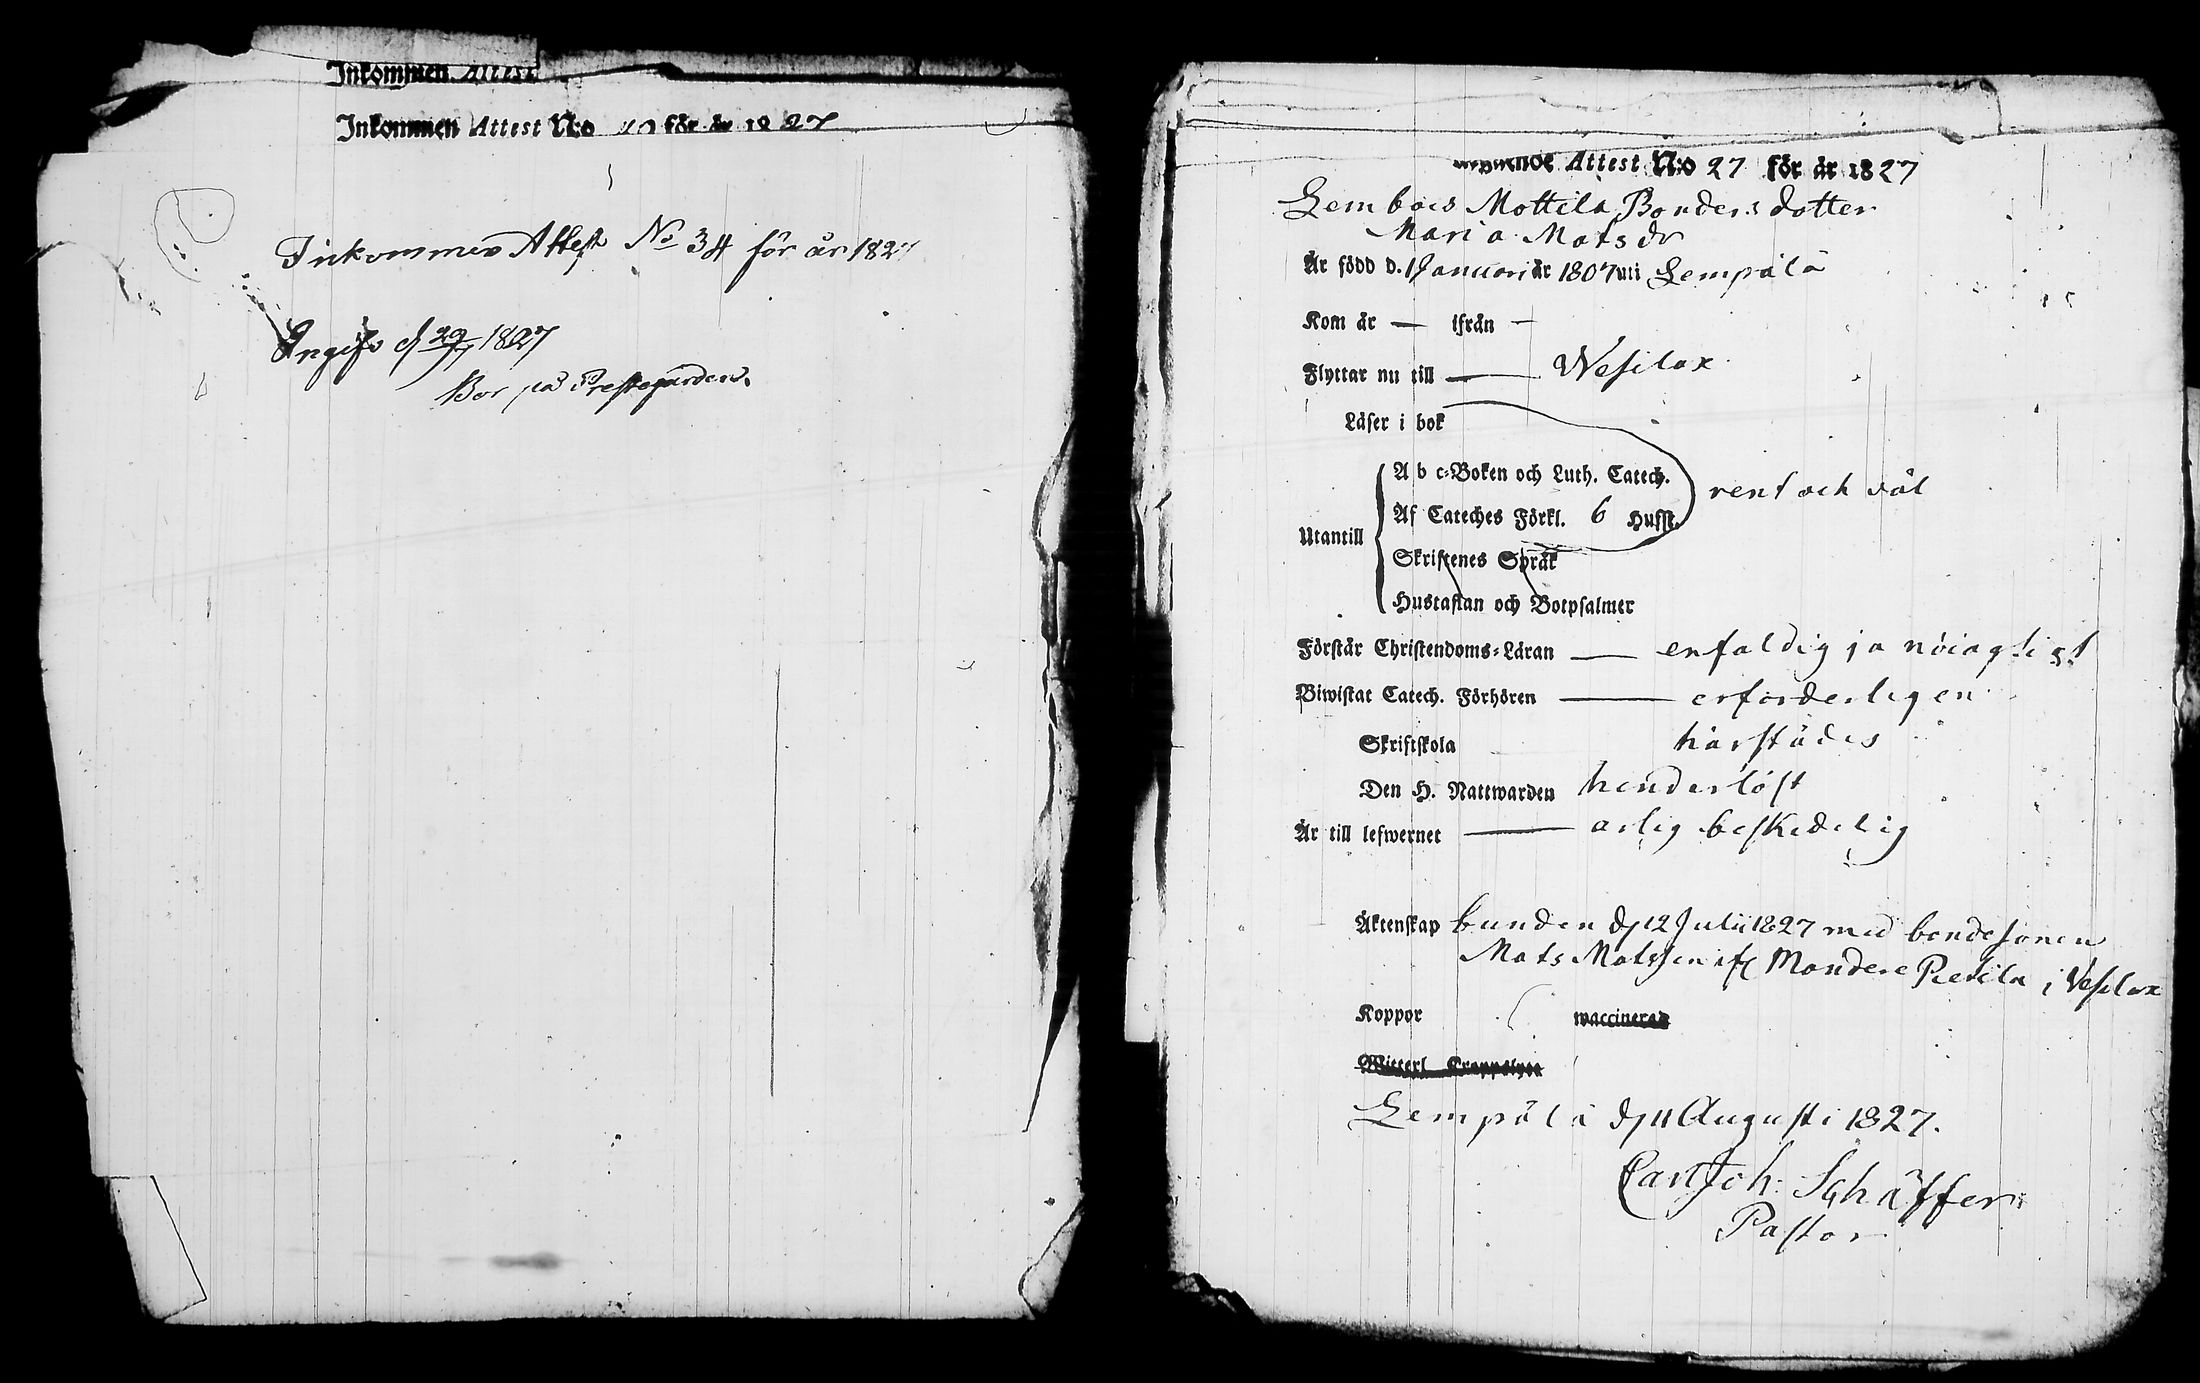 Inkommen Attest
Inkommen Attest N:o för år 1827
Inkommen Attest No 34 för år 1827
Angifs d 29/ 1827
Bor på Prestegården.
Attest N:o 27 för år 1827
Lembois Mottila Bonders dotter
Maria Matsdr
Är född d. 1 Januari år 1807 uti Lempälä
Kom år — ifrån —
Flyttar nu till — Wesilax
Läser i bok
A b c-Boken och Luth. Catech.
rent och väl
Af Cateches Förkl. 6 Hufst.
Utantill
Skriftenes Språk
Hustaflan och Botpsalmer
Förstår Christendoms-Läran — enfaldig ja nöiagtigt
Biwistat Catech. Förhören — erforderligen
Skriftskola härstädes
Den H. Nattwarden hinderlöst
Är till lefwernet — ärlig beskedelig
Äktenskap bunden d 12 Julii 1827 med bondesonen
Mats Matsson ifr Mandere Pietila i Vesilax
Koppor waccinerad
Lempälä d 11 Augusti 1827.
Carl Joh: Schäffer
Pastor